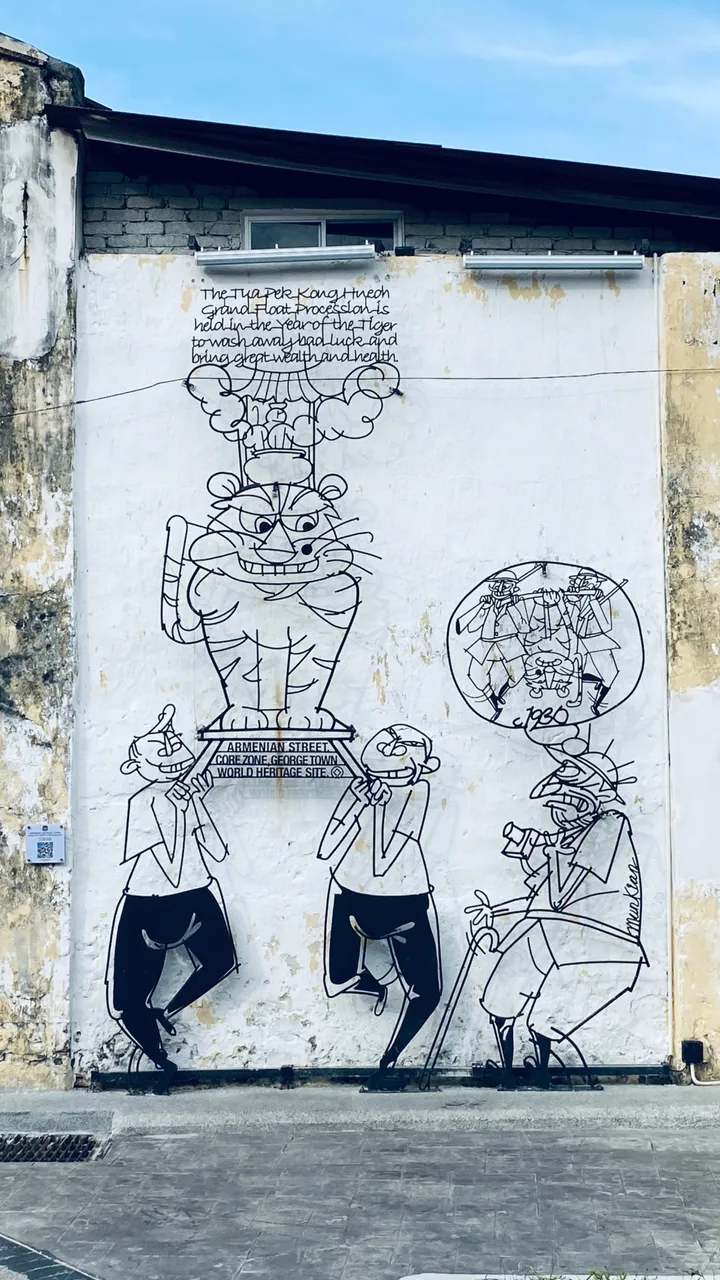 The Tua Pek Kong Hneoh
Grand Float Procession is
held in the Year of the Tiger
to wash away bad luck and
bring great wealth and health
ARMENIAN STREET,
CORE ZONE, GEORGE TOWN
WORLD HERITAGE SITE.
c1930